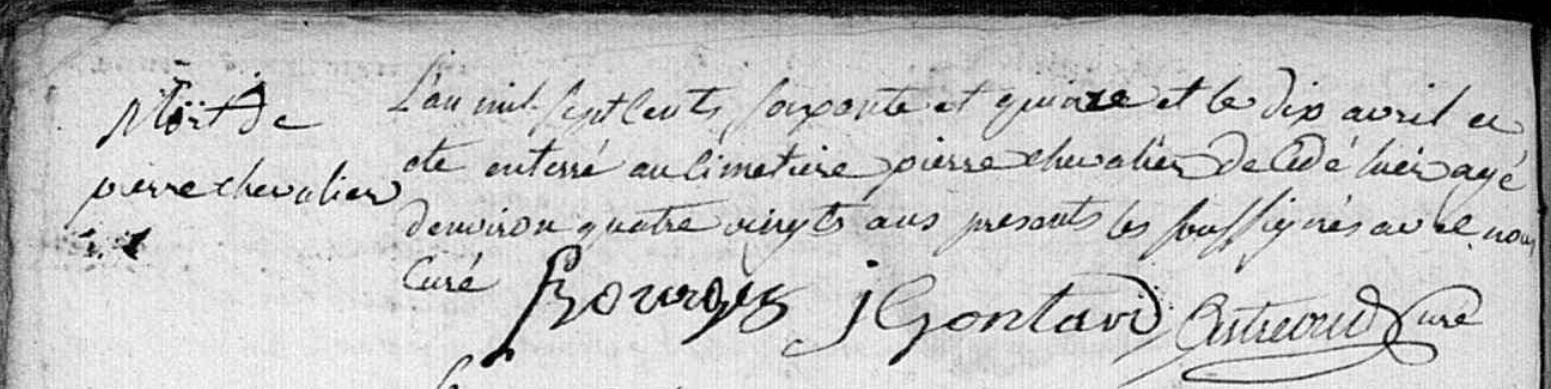 Mort de
pierre chevalier
L'an mil sept cents soixante et quinze et le dix avril a
ete enterré au cimetiere pierre chevalier decedé hier agé
d'environ quatre vingts ans presents les soussignés avec nous
Curé Bourges J Gontard curé